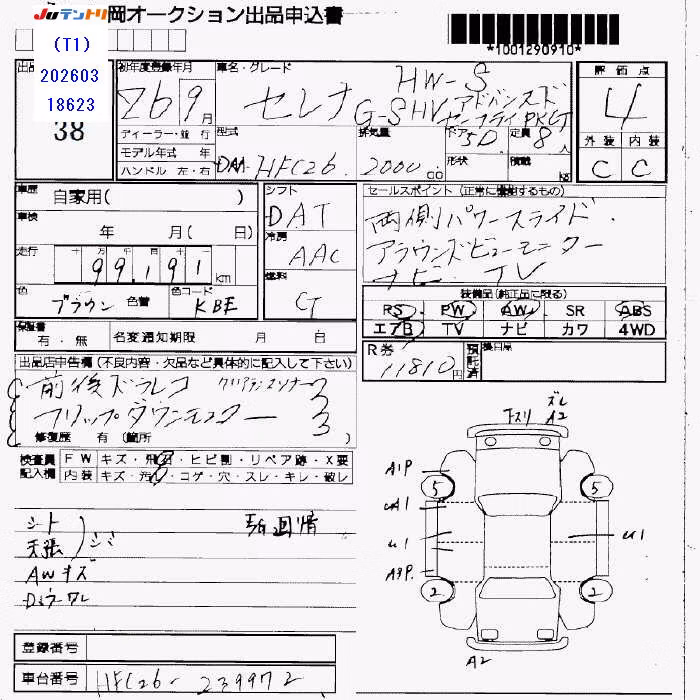 Juテントリ 岡オークション出品申込書
*1001290910*
(T1)
202603
18623
38
初年度登録年月
26 9月
ディーラー・並行
モデル年式 年
ハンドル 左・右
車名・グレード
HW-S
セレナ G-SHV アドバンスド
セーフティ PKG
型式 DAA-HFC26
排気量 2000 cc
ドア 5D
形状
定員 8人
積載 kg
評価点
4
外装 内装
C C
車歴 自家用( )
車検 年 月( 日)
走行 十 万 千 百 十 一
99,191 km
色 ブラウン 色替
色コード KBE
シフト DAT
冷房 AAC
燃料
セールスポイント (正常に機能するもの)
両側パワースライド・
アラウンドビューモニター
ナビ・TV
装備品(純正品に限る)
PS PW AW SR ABS
エアB TV ナビ カワ 4WD
保証書 有・無
名変通知期限 月 日
R券 11810円
預託済
出品店申告欄(不良内容・欠品など具体的に記入して下さい)
前後ドラレコ クリアランスソナー
フリップダウンモニター
修復歴 有 (箇所
検査員記入欄
FW キズ・飛石・ヒビ割・リペア跡・X要
内装 キズ・汚れ・コゲ・穴・スレ・キレ・破レ
シート
天張 シミ
AWキズ
ズレ
下スリ A2
A1P
5 5
U1
U1
2 2
A2
登録番号
車台番号 HFC26-239972